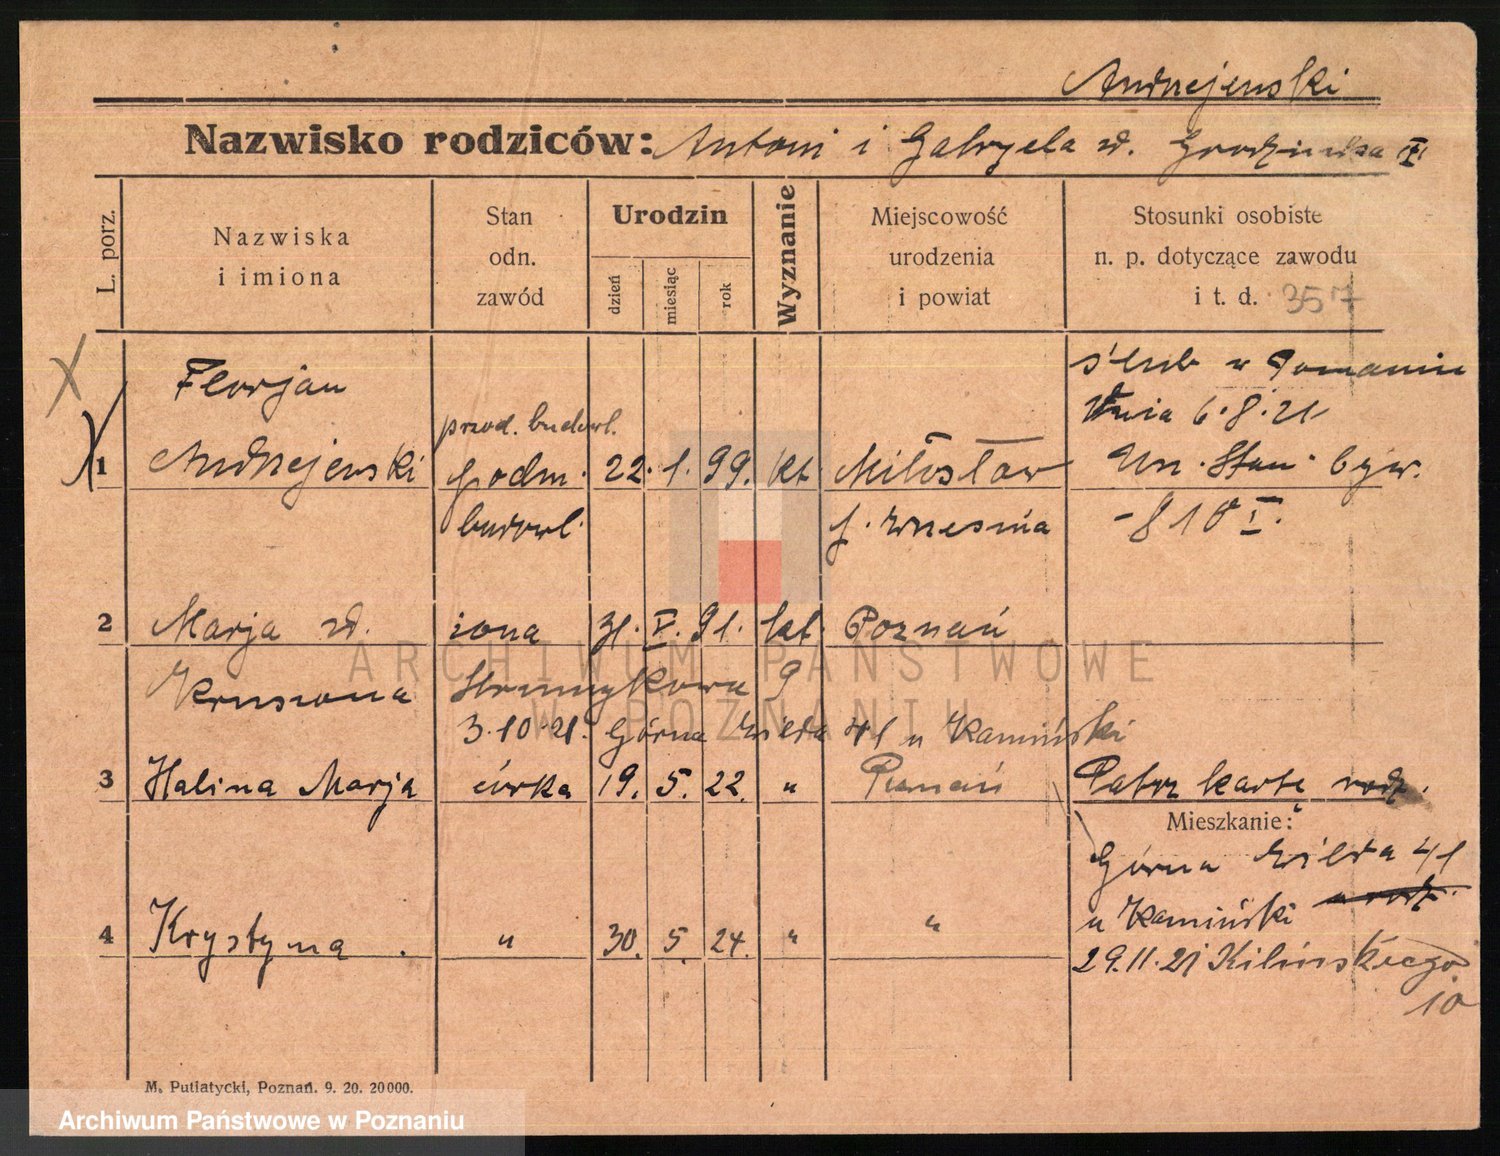 Andrzejewski
Nazwisko rodziców: Antoni i Gabryela zd.
L. porz.
Nazwiska
i imiona
Stan
odn.
zawód
Urodzin
dzień
miesiąc
rok
Wyznanie
Miejscowość
urodzenia
i powiat
Stosunki osobiste
n. p. dotyczące zawodu
i t. d. 357
Florjan
Andrzejewski
1
przod. budowl.
podm.
budowl.
22. 1. 99. kt.
Miłosław
p. Września
ślub w Poznaniu
dnia 6.8.21
Urz. Stan.
- 810 I.
2 Marja zd. żona 31. V. 91. kt. Poznań
Strumykowa 9
3.10.21. Górna Wilda 41 u Kamiński
3 Halina Marja córka 19. 5. 22. " Poznań
Patrz kartę rodz.
Mieszkanie:
Górna Wilda 41
u Kamiński
29.11.21 Kilińskiego
10
4 Krystyna. " 30. 5. 24. " "
M. Putiatycki, Poznań. 9. 20. 20000.
ARCHIWUM PAŃSTWOWE
W POZNANIU
Archiwum Państwowe w Poznaniu